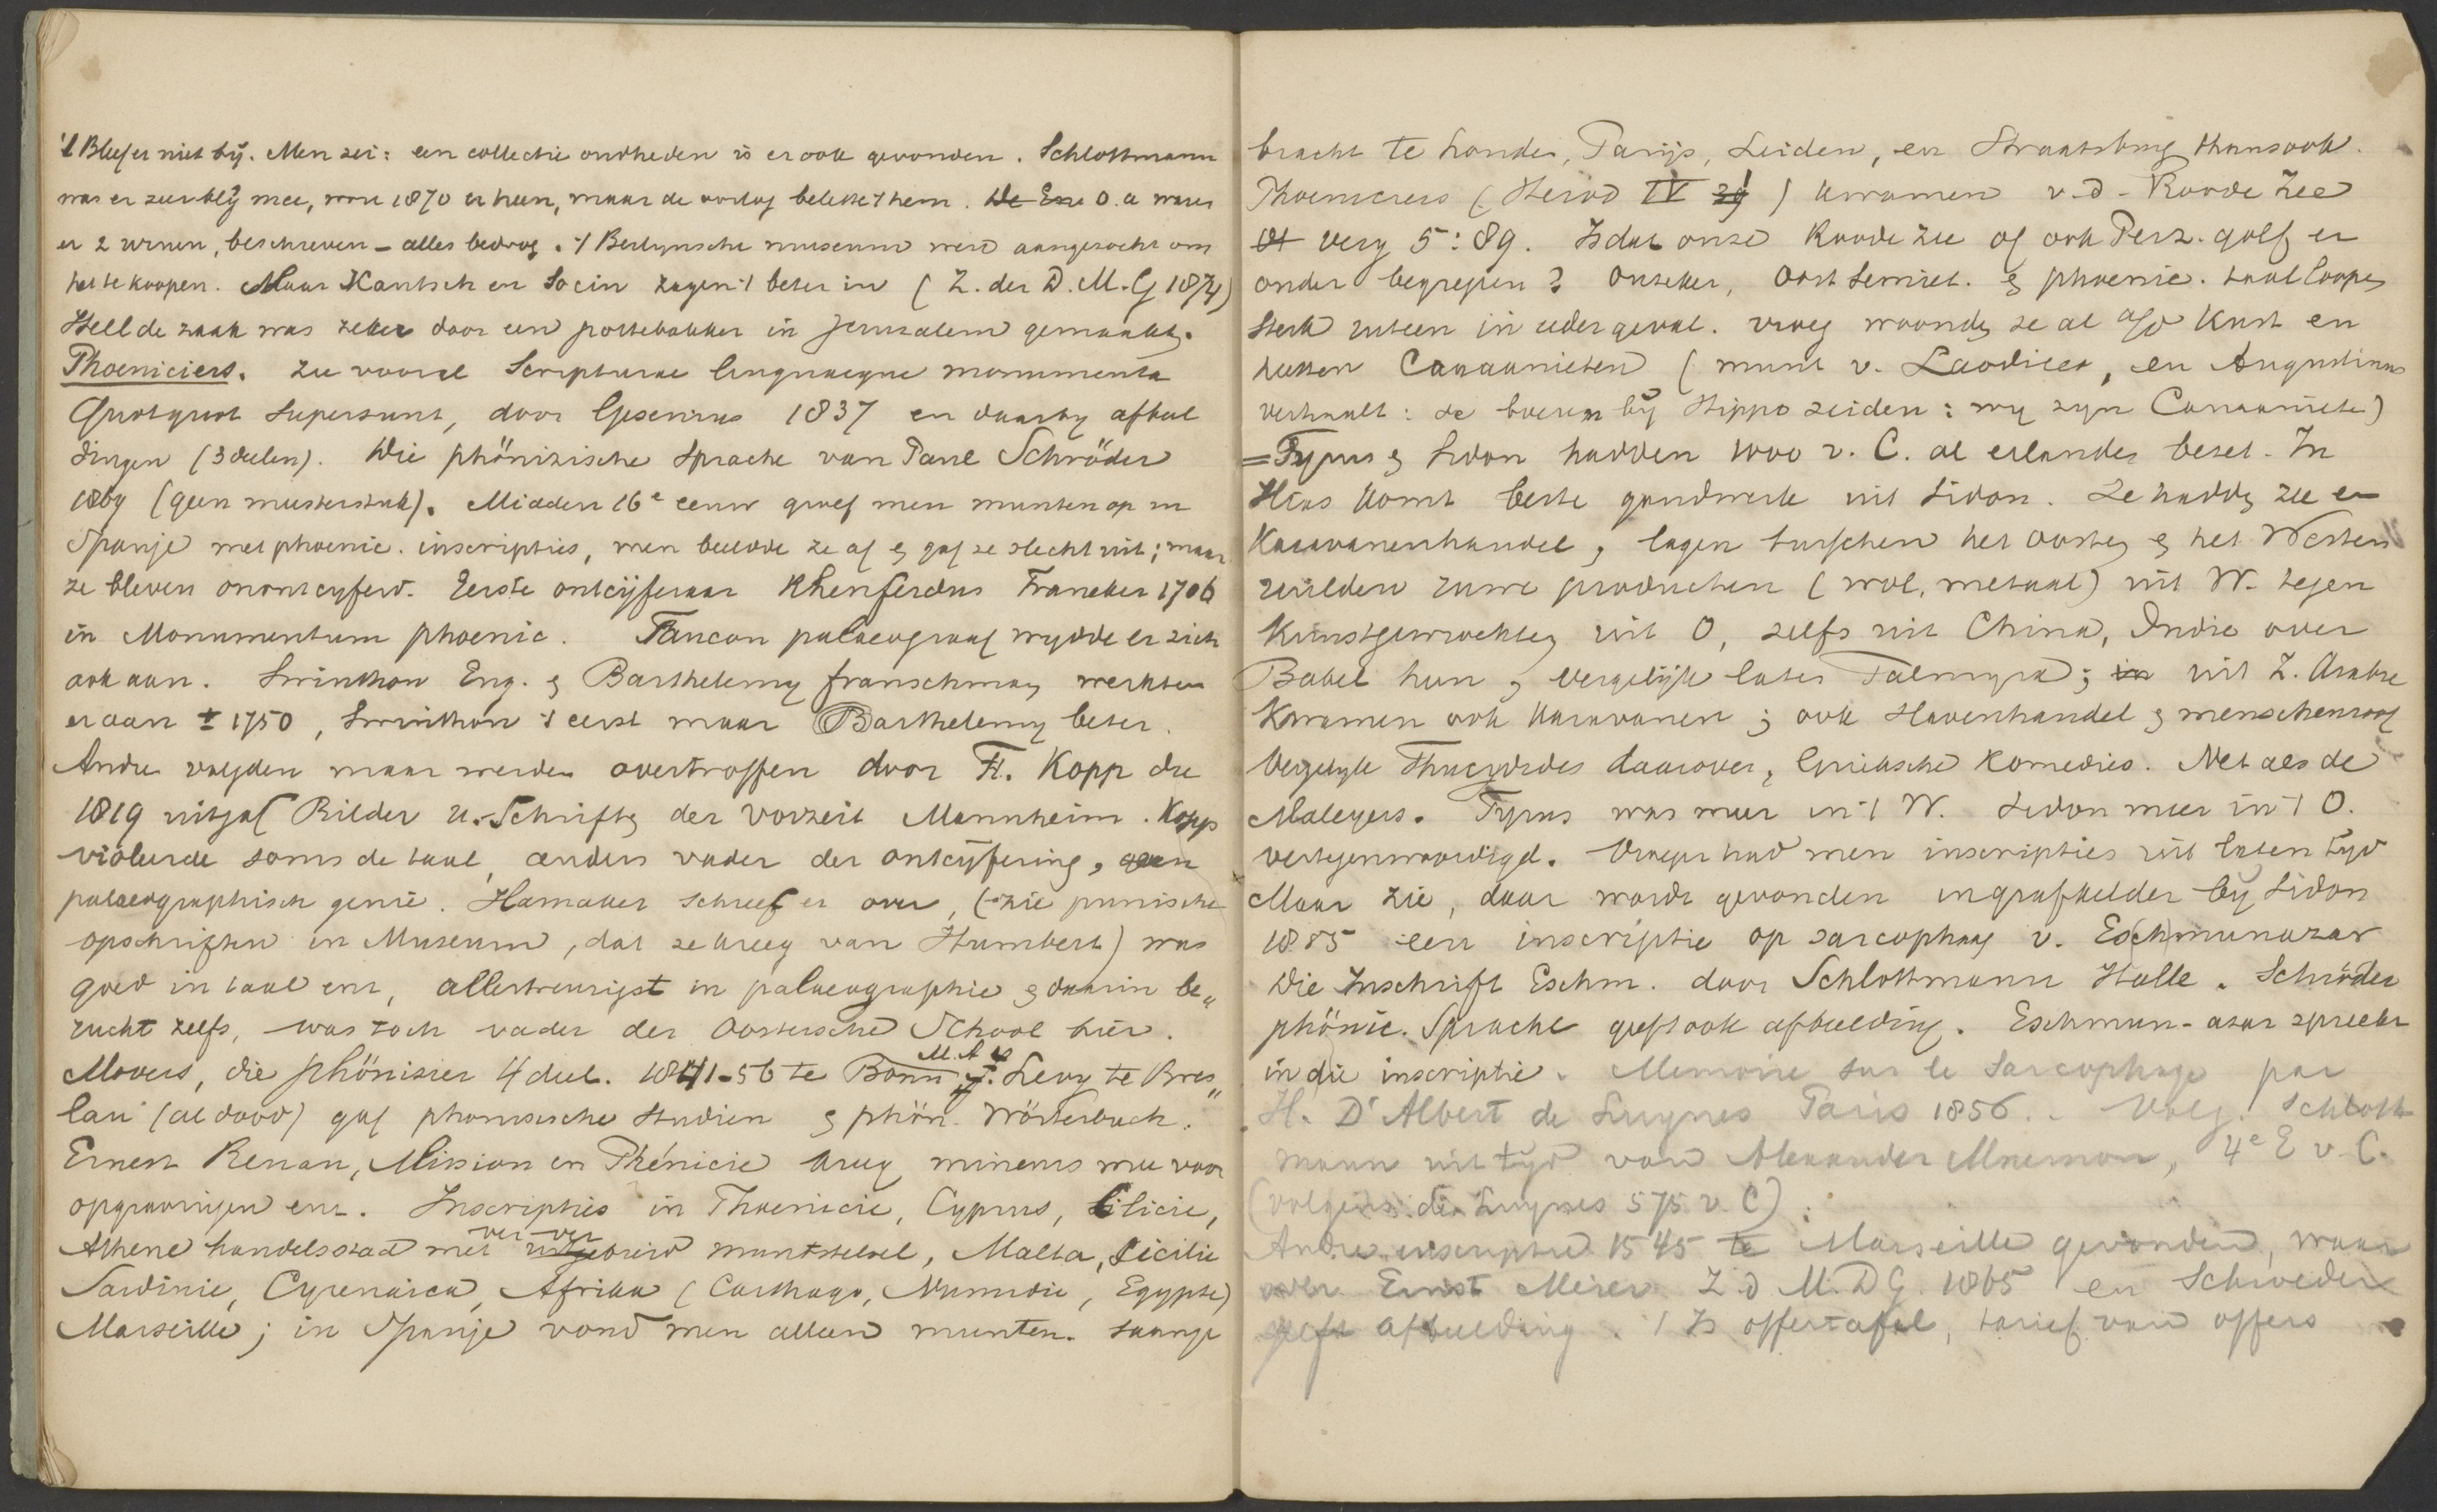 't Bleef er niet bij. Men zei: een collectie oudheden is er ook gevonden. Schlottmann
was er zeer blij mee, wou 1870 er heen, maar de oorlog belette 't hem. De Ene O. a waren
er 2 urnen, beschreven – alles bedrog. 't Berlynsche museum werd aangezocht om
het te koopen. Maar Kautsch en Socin zagen 't beter in (Z. der D. M. G 1874)
Hell de zaak was zeker door een pottebakker in Jeruzalem gemaakt.
Phoeniciers. Zie vooral Scripturae linguaeque monumenta
Quotquot supersunt, door Gesenius 1837 en daarby afbeel
dingen (3 deelen). Die phönizische Sprache van Paul Schröder
1869 (geen meesterstuk). Midden 16e eeuw groef men munten op in
Spanje met phoenic. inscripties, men beeldde ze af & gaf ze slecht uit; maar
ze bleven onontcyferd. Eerste ontcijferaar Rhenferdus Franeker 1706
in Monumentum phoenic. Faucon palaeograaf wydde er zich
ook aan. Swinthon Eng. & Barthelemy franschman werkten
er aan ± 1750, Swinthon 't eerst maar Barthelemy beter.
Andre volgden maar werden overtroffen door Fr. Kopp die
1819 uitgaf Bilder u. Schriften der Vorzeit Mannheim. Kopp
violeerde soms de taal, anders vader der ontcijfering, een
palaeographisch genie. Hamaker schreef er over, (zie punische
opschriften in Museum, dat ze kreeg van Humbert) was
goed in taal enz, allertreurigst in palaeographie & daarin be„
rucht zelfs, was toch vader der Oostersche School hier.
Movers, die phönizier 4 deel. 1841-56 te Bonn M. A. Levy te Bres„
lau (al dood) gaf phonizische Studien & phön. Wörterbuch.
Ernest Renan, Mission en Phénicie kreeg mineurs mee voor
opgravingen enz. Inscripties in Phoenicie, Cyprus, Cilicie,
Athene handelsstad met uitgebreid ver-ver muntstelsel, Malta, Sicilie
Sardinie, Cyrenaica, Afrika (Carthago, Numidie, Egypte)
Marseille; in Spanje vond men alleen munten.
bracht te Londen, Parijs, Leiden, en Straatsburg thans ook.
Phoeniciers (Herod IV 39) kwamen v. d. Roode Zee
Of verg 5:89. Is dat onze Roode Zee of ook Perz. golf er
onder begrepen? Onzeker, Oost Semiet. & phoenic. taal loopen
sterk uiteen in ieder geval. vroeg woonden ze al a/d Kust en
heetten Canaanieten (munt v. Laodicea, en Augustinus
verhaalt: de boeren bij Hippo zeiden: wy zyn Canaaniete)
= Tyrus & Sidon hadden 1000 v. C. al eilanden bezet. In
Ilias komt beste goudwerk uit Sidon. Ze hadden zee en
Karavanenhandel, lagen tusschen het Oosten & het Westen
ruilden ruwe producten (wol, metaal) uit W. tegen
Kunstgewrochten uit O, zelfs uit China, Indie over
Babel heen, vergelijk later Palmyra; in uit Z. Arabie
Kwamen ook karavanen; ook slavenhandel & menschenroof
Vergelyk Thucydides daarover, Grieksche Komedies. Net als de
Maleyers. Tyrus was meer in 't W. Sidon meer in 't O.
vertegenwoordigd. Vroeger had men inscripties uit laten tyd
Maar zie, daar wordt gevonden in grafkelder by Sidon
1885 een inscriptie op sarcophaag v. Es(ch)munazar
Die Inschrift Eschm. door Schlottmann Halle. Schröder
phönic. Sprache geeft ook afbeelding. Eschmun-azar spreekt
in die inscriptie. Memoire sur le Sarcophage par
H. D'Albert de Luynes Paris 1856. Volg. Schlott
mann uit tyd van Alexander Mnemon, 4e E v. C.
(volgens de Luynes 575 v. C)
Andre inscriptie 1545 te Marseille gevonden, waar
over Ernst Meier Z. d M. D G. 1865 en Schroeder
geeft afbeelding. 't Is offertafel, tarief van offers